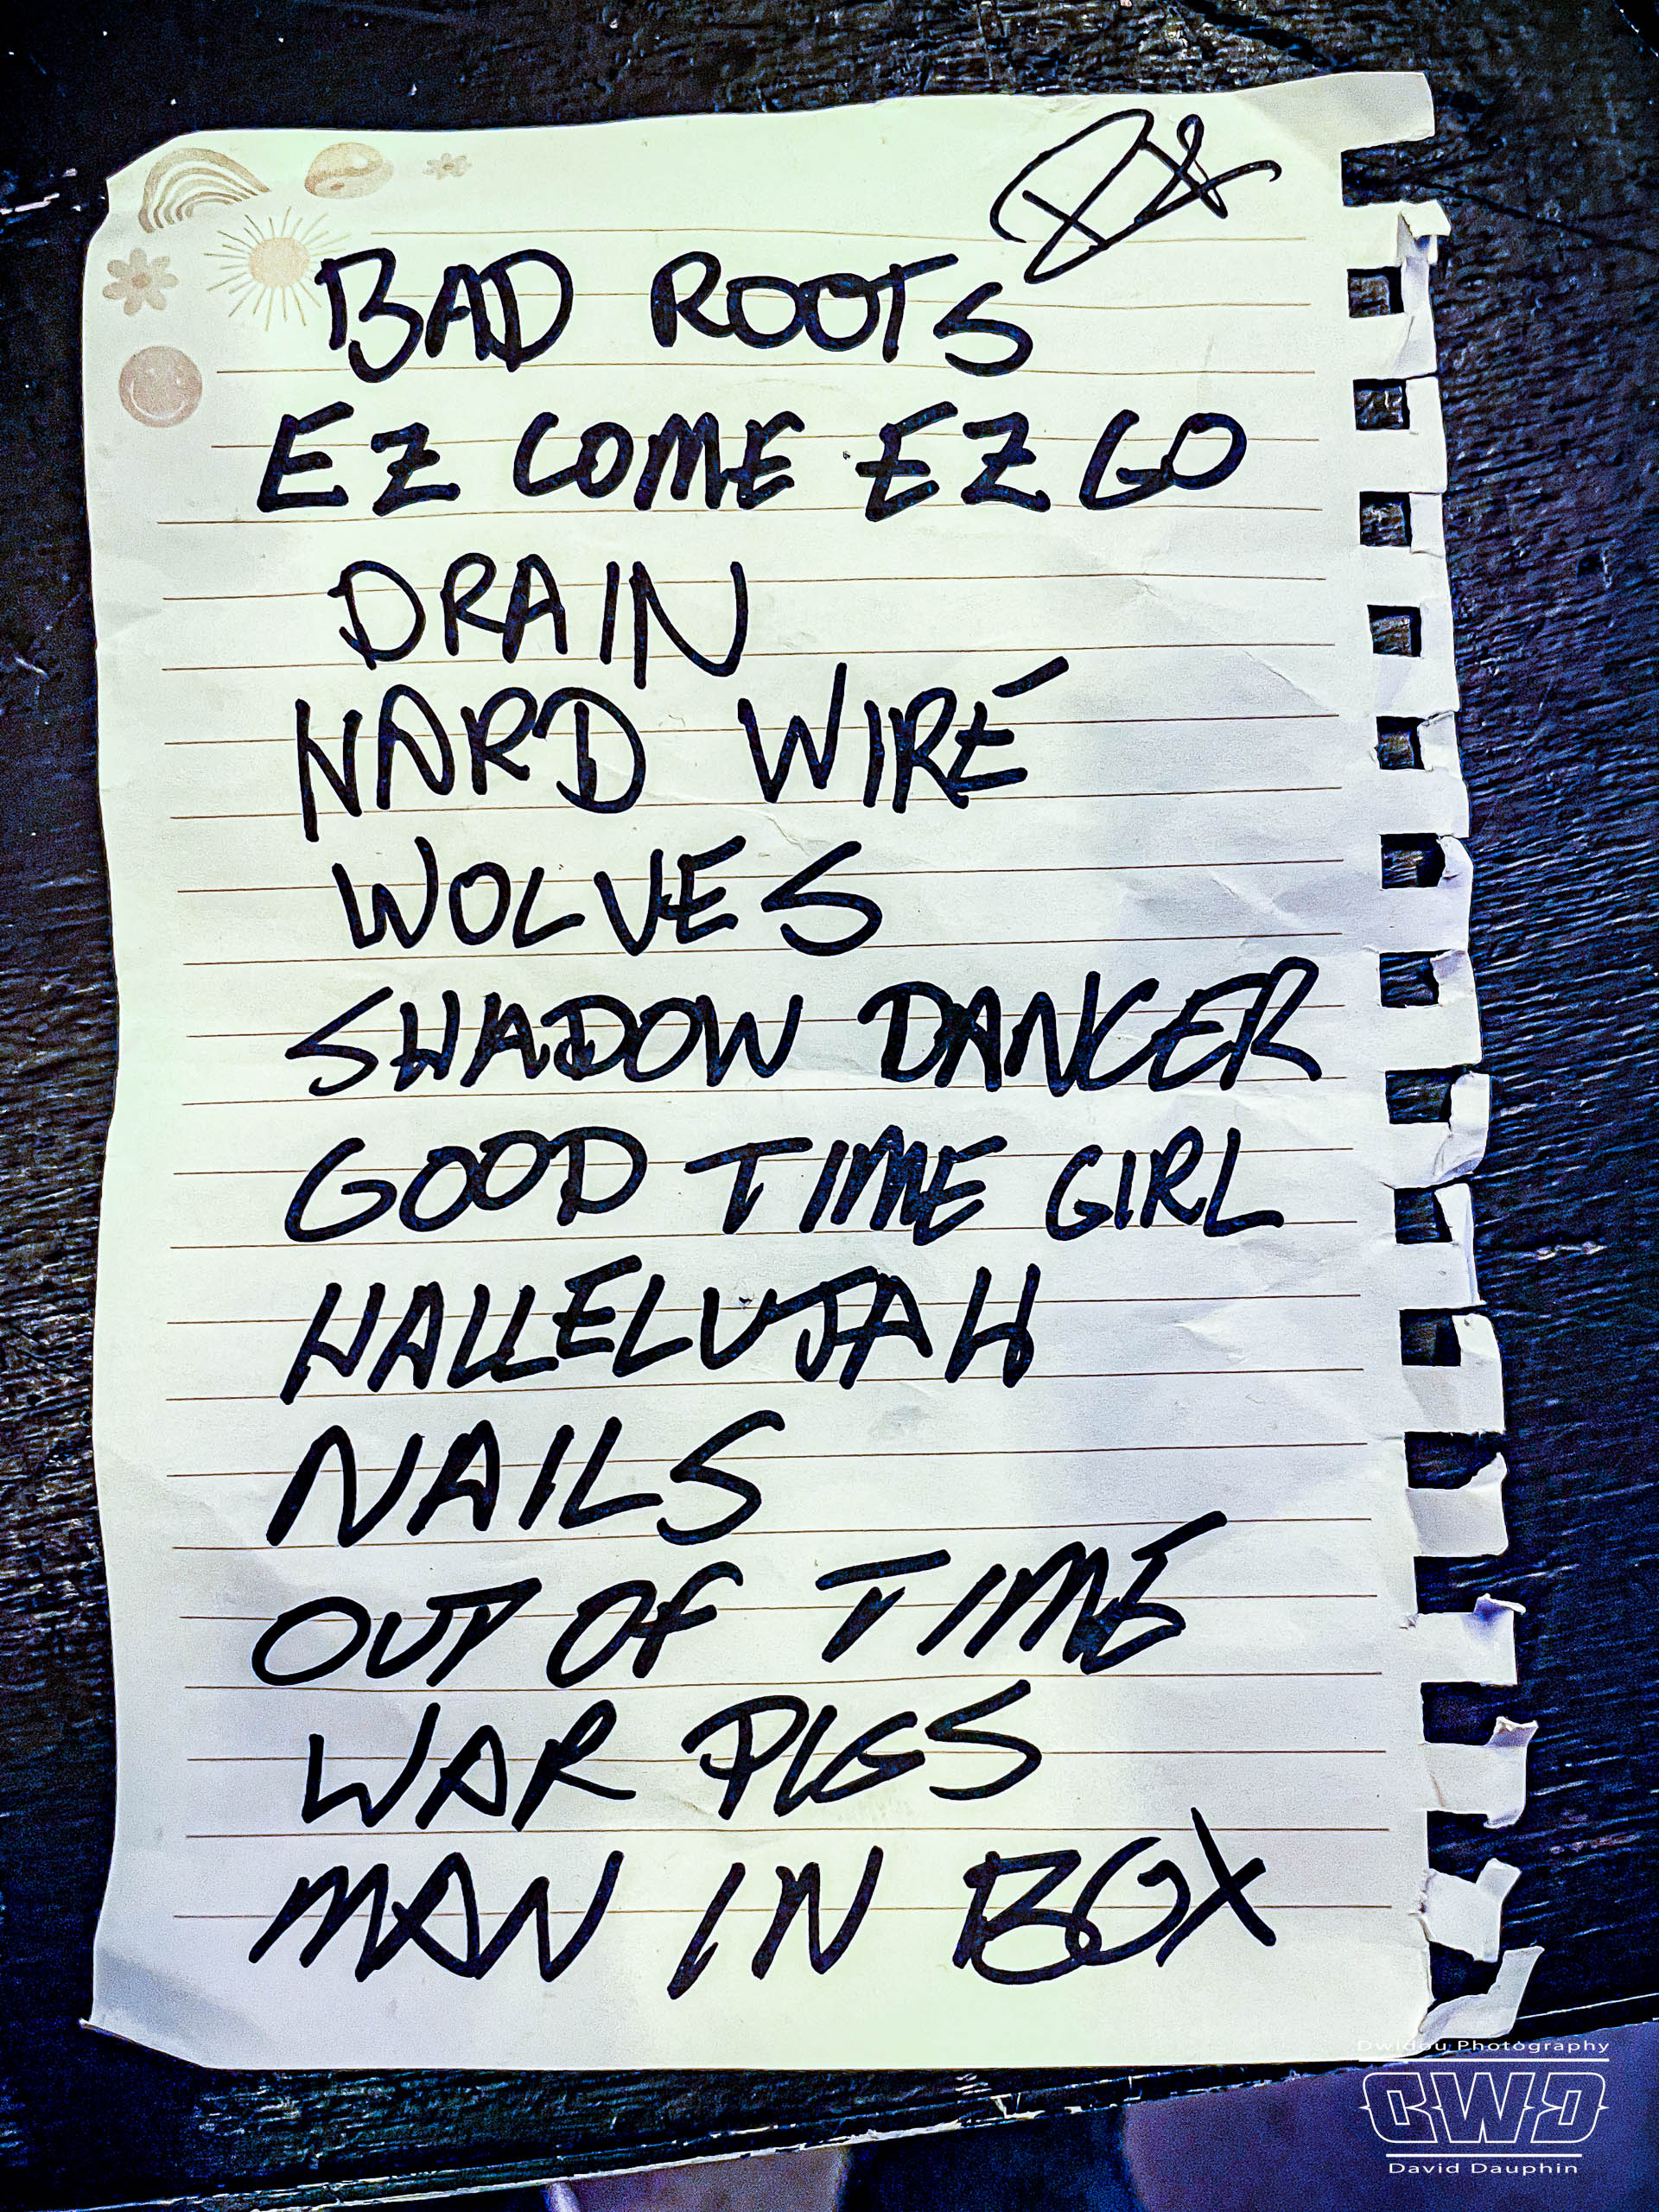 BAD ROOTS
EZ COME EZ GO
DRAIN
HARD WIRE
WOLVES
SHADOW DANCER
GOOD TIME GIRL
HALLELUJAH
NAILS
OUT OF TIME
WAR PIGS
MAN IN BOX
Dwidou Photography
DWD
David Dauphin